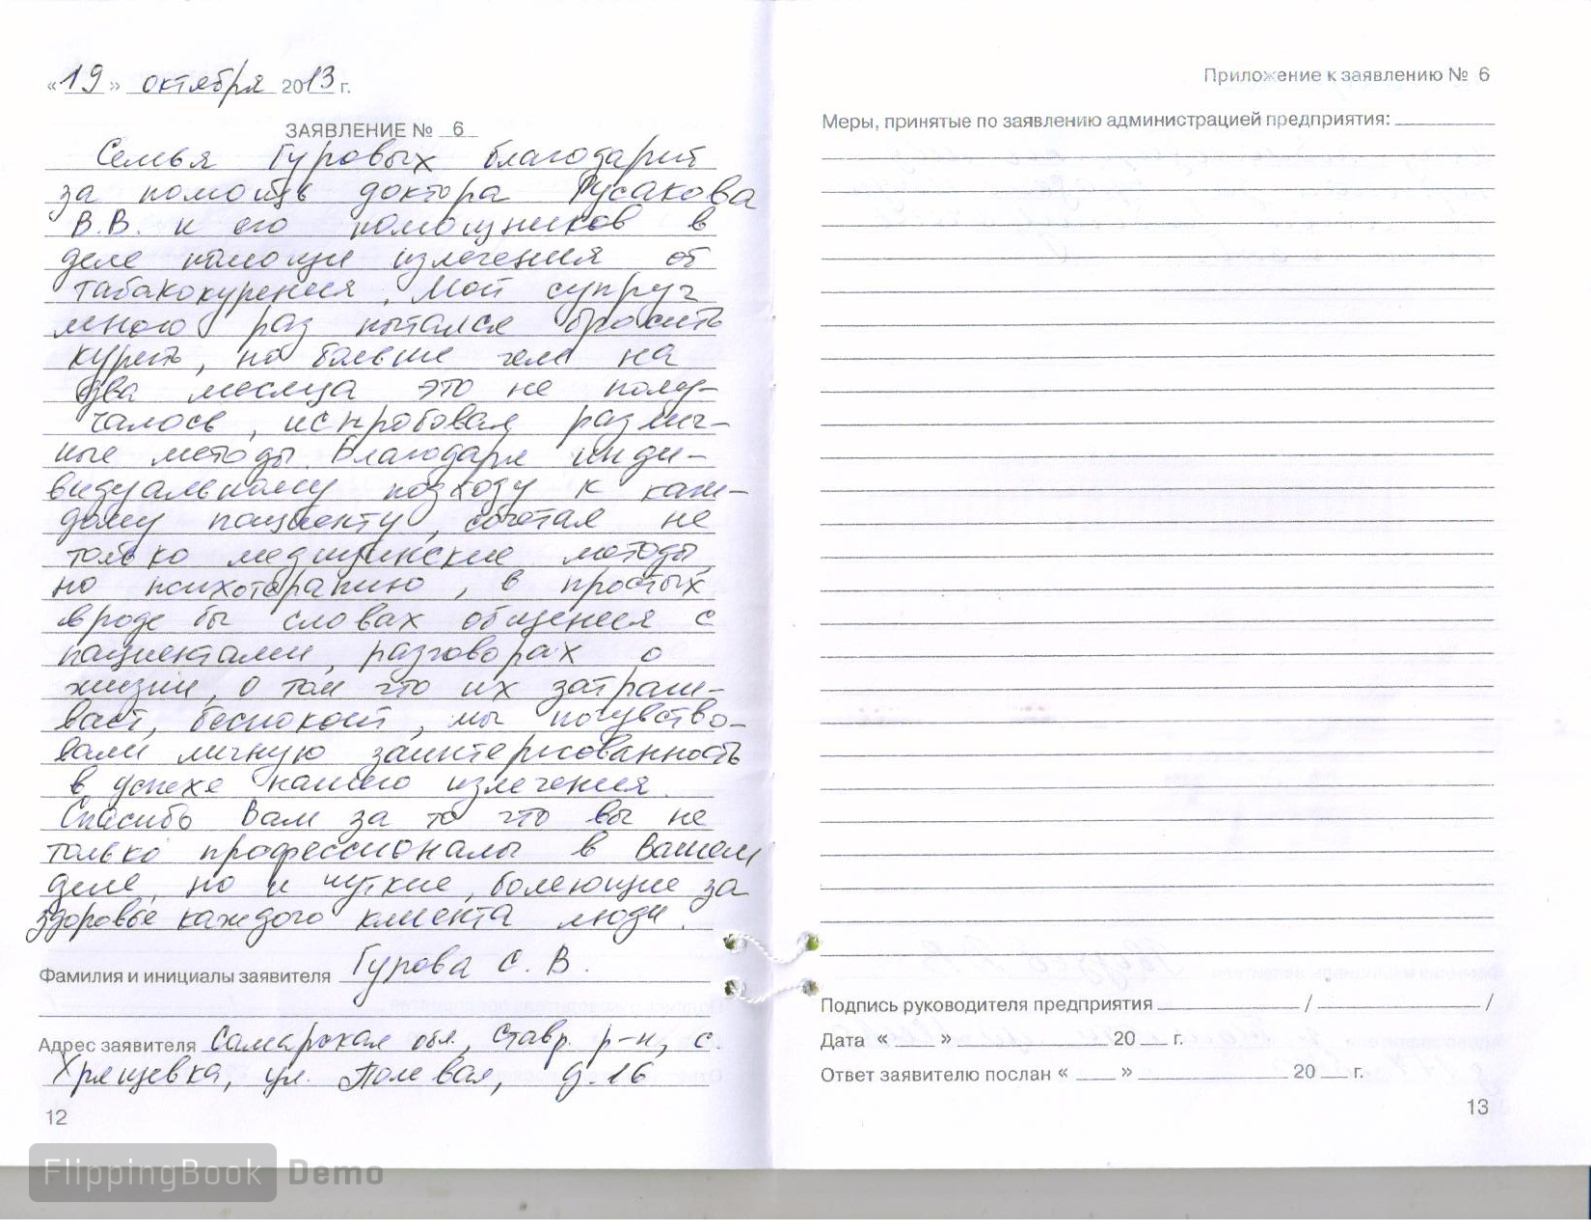 «19» октября 2013 г.
ЗАЯВЛЕНИЕ № 6
Семья Гуровых благодарит
за помощь доктора Русакова
В.В. и его помощников в
деле помощи излечения от
табакокурения. Мой супруг
много раз пытался бросить
курить, но больше чем на
два месяца это не полу-
чалось, испробовал различ-
ные методы. Благодаря инди-
видуальному подходу к каж-
дому пациенту, сочетая не
только медицинские методы,
но психотерапию, в простых
вроде бы словах общения с
пациентами, разговорах о
жизни, о том что их затраги-
вает, беспокоит, мы почувство-
вали личную заинтерисованность
в успехе нашего излечения.
Спасибо Вам за то что вы не
только профессионалы в Вашем
деле, но и чуткие, болеющие за
здоровье каждого клиента люди.
Фамилия и инициалы заявителя Гурова С. В.
Адрес заявителя Самарская обл., Ставр. р-н, с.
Хрящевка, ул. Полевая, д. 16
12
Приложение к заявлению № 6
Меры, принятые по заявлению администрацией предприятия:
Подпись руководителя предприятия / /
Дата « » 20 г.
Ответ заявителю послан « » 20 г.
13
FlippingBook Demo